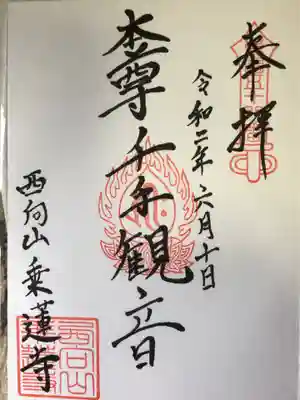 奉拝
令和二年六月十日
本尊千手観音
西向山乗蓮寺